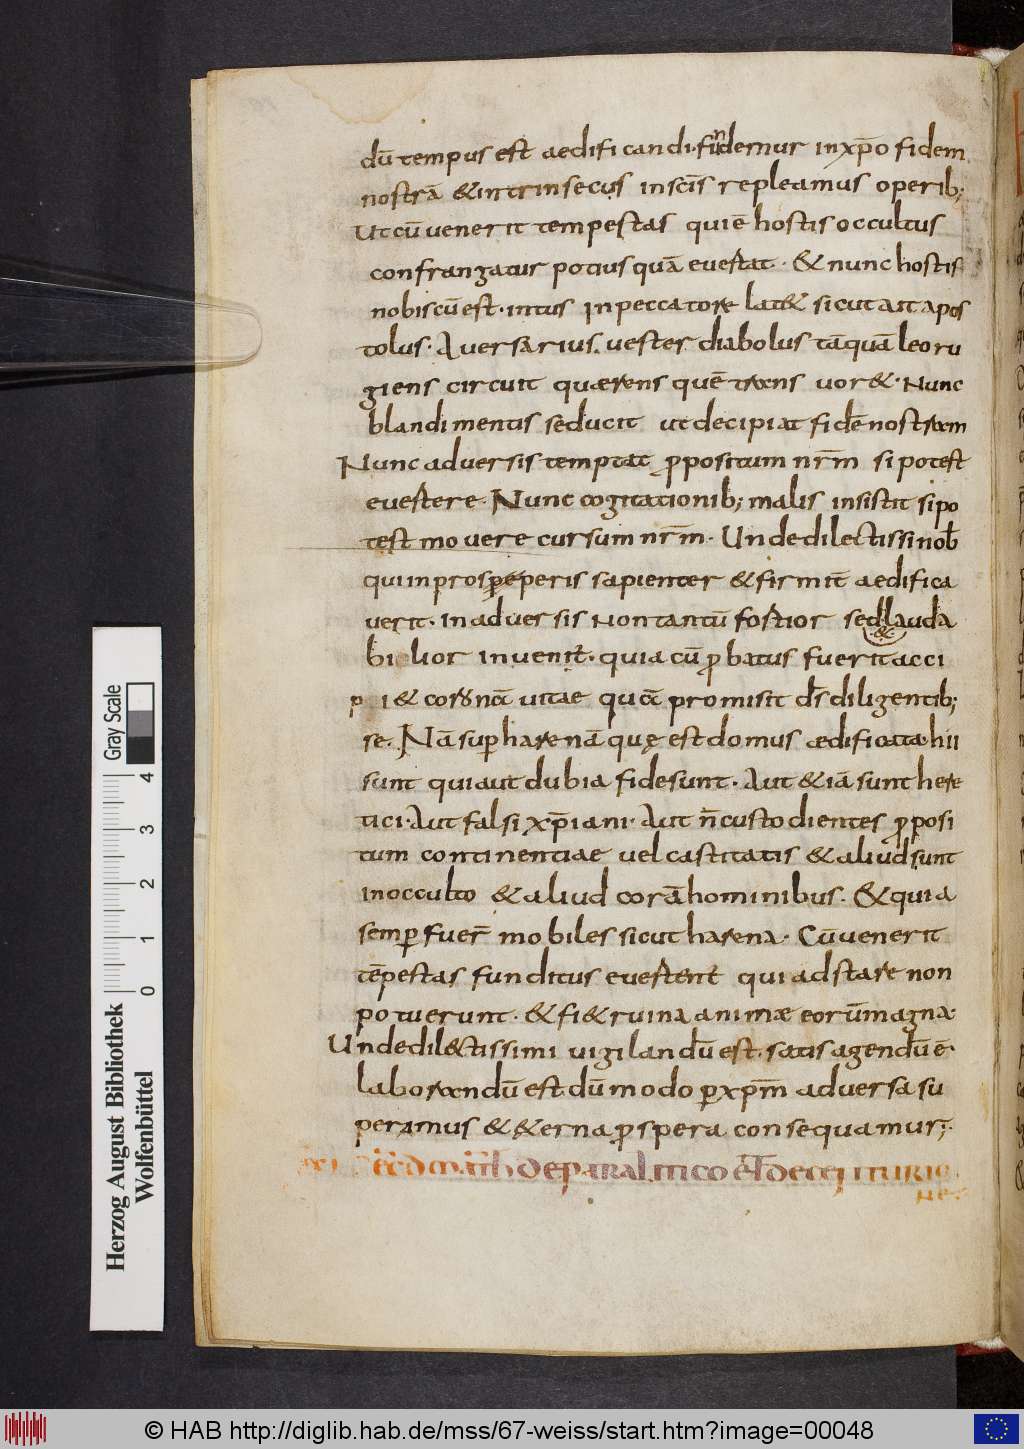 dū tempus est aedificandi. fundemur in xp̄o fidem
nostrā & intrinsecus in scīs repleamus operib;
Ut cū venerit tempestas qui ē hostis occultus
confrangatur potius quā evertat. & nunc hostis
nobiscū est. intus in peccatore lat& sicut ait apos
tolus. Aversarius vester diabolus tāquā leo ru
giens circuit quaerens quē trans vor&. Nunc
blandimentis seducit ut decipiat fidē nostram
Nunc adversis temptat ꝓpositum nr̄m si potest
evertere. Nunc cogitationib; malis insistit si po
test movere cursum nr̄m. Unde dilectissi nob̄
qui in prosperis sapienter & firmit̄ aedifica
verit. in adversis non tantū fortior sed & lauda
bilior invenit̄. quia cū ꝓbatus fuerit acci
pi& coronā vitae quā promisit ds̄ diligentib;
se. Nā suꝑ harenā quę est domus ædificata hii
sunt qui aut dubia fide sunt. Aut & iā sunt here
tici. Aut falsi xp̄iani. Aut n̄ custodientes ꝓposi
tum continentiae vel castitatis & aliud sunt
in occulto & aliud corā hominibus. & quia
semꝑ fuer̄ mobiles sicut harena. Cū venerit
tēpestas funditus evertent̄ qui adstare non
potuerunt. & fi& ruina animæ eorū magna.
Unde dil&tissimi vigilandū est. satis agendū ē.
laborandū est dū modo ꝑ xp̄m̄ adversa su
peramus & &erna ꝓspera consequamur;
sc̄d math de paralitico et de centurio
ne
Herzog August Bibliothek
Wolfenbüttel
0 1 2 3 4
Gray Scale
© HAB http://diglib.hab.de/mss/67-weiss/start.htm?image=00048